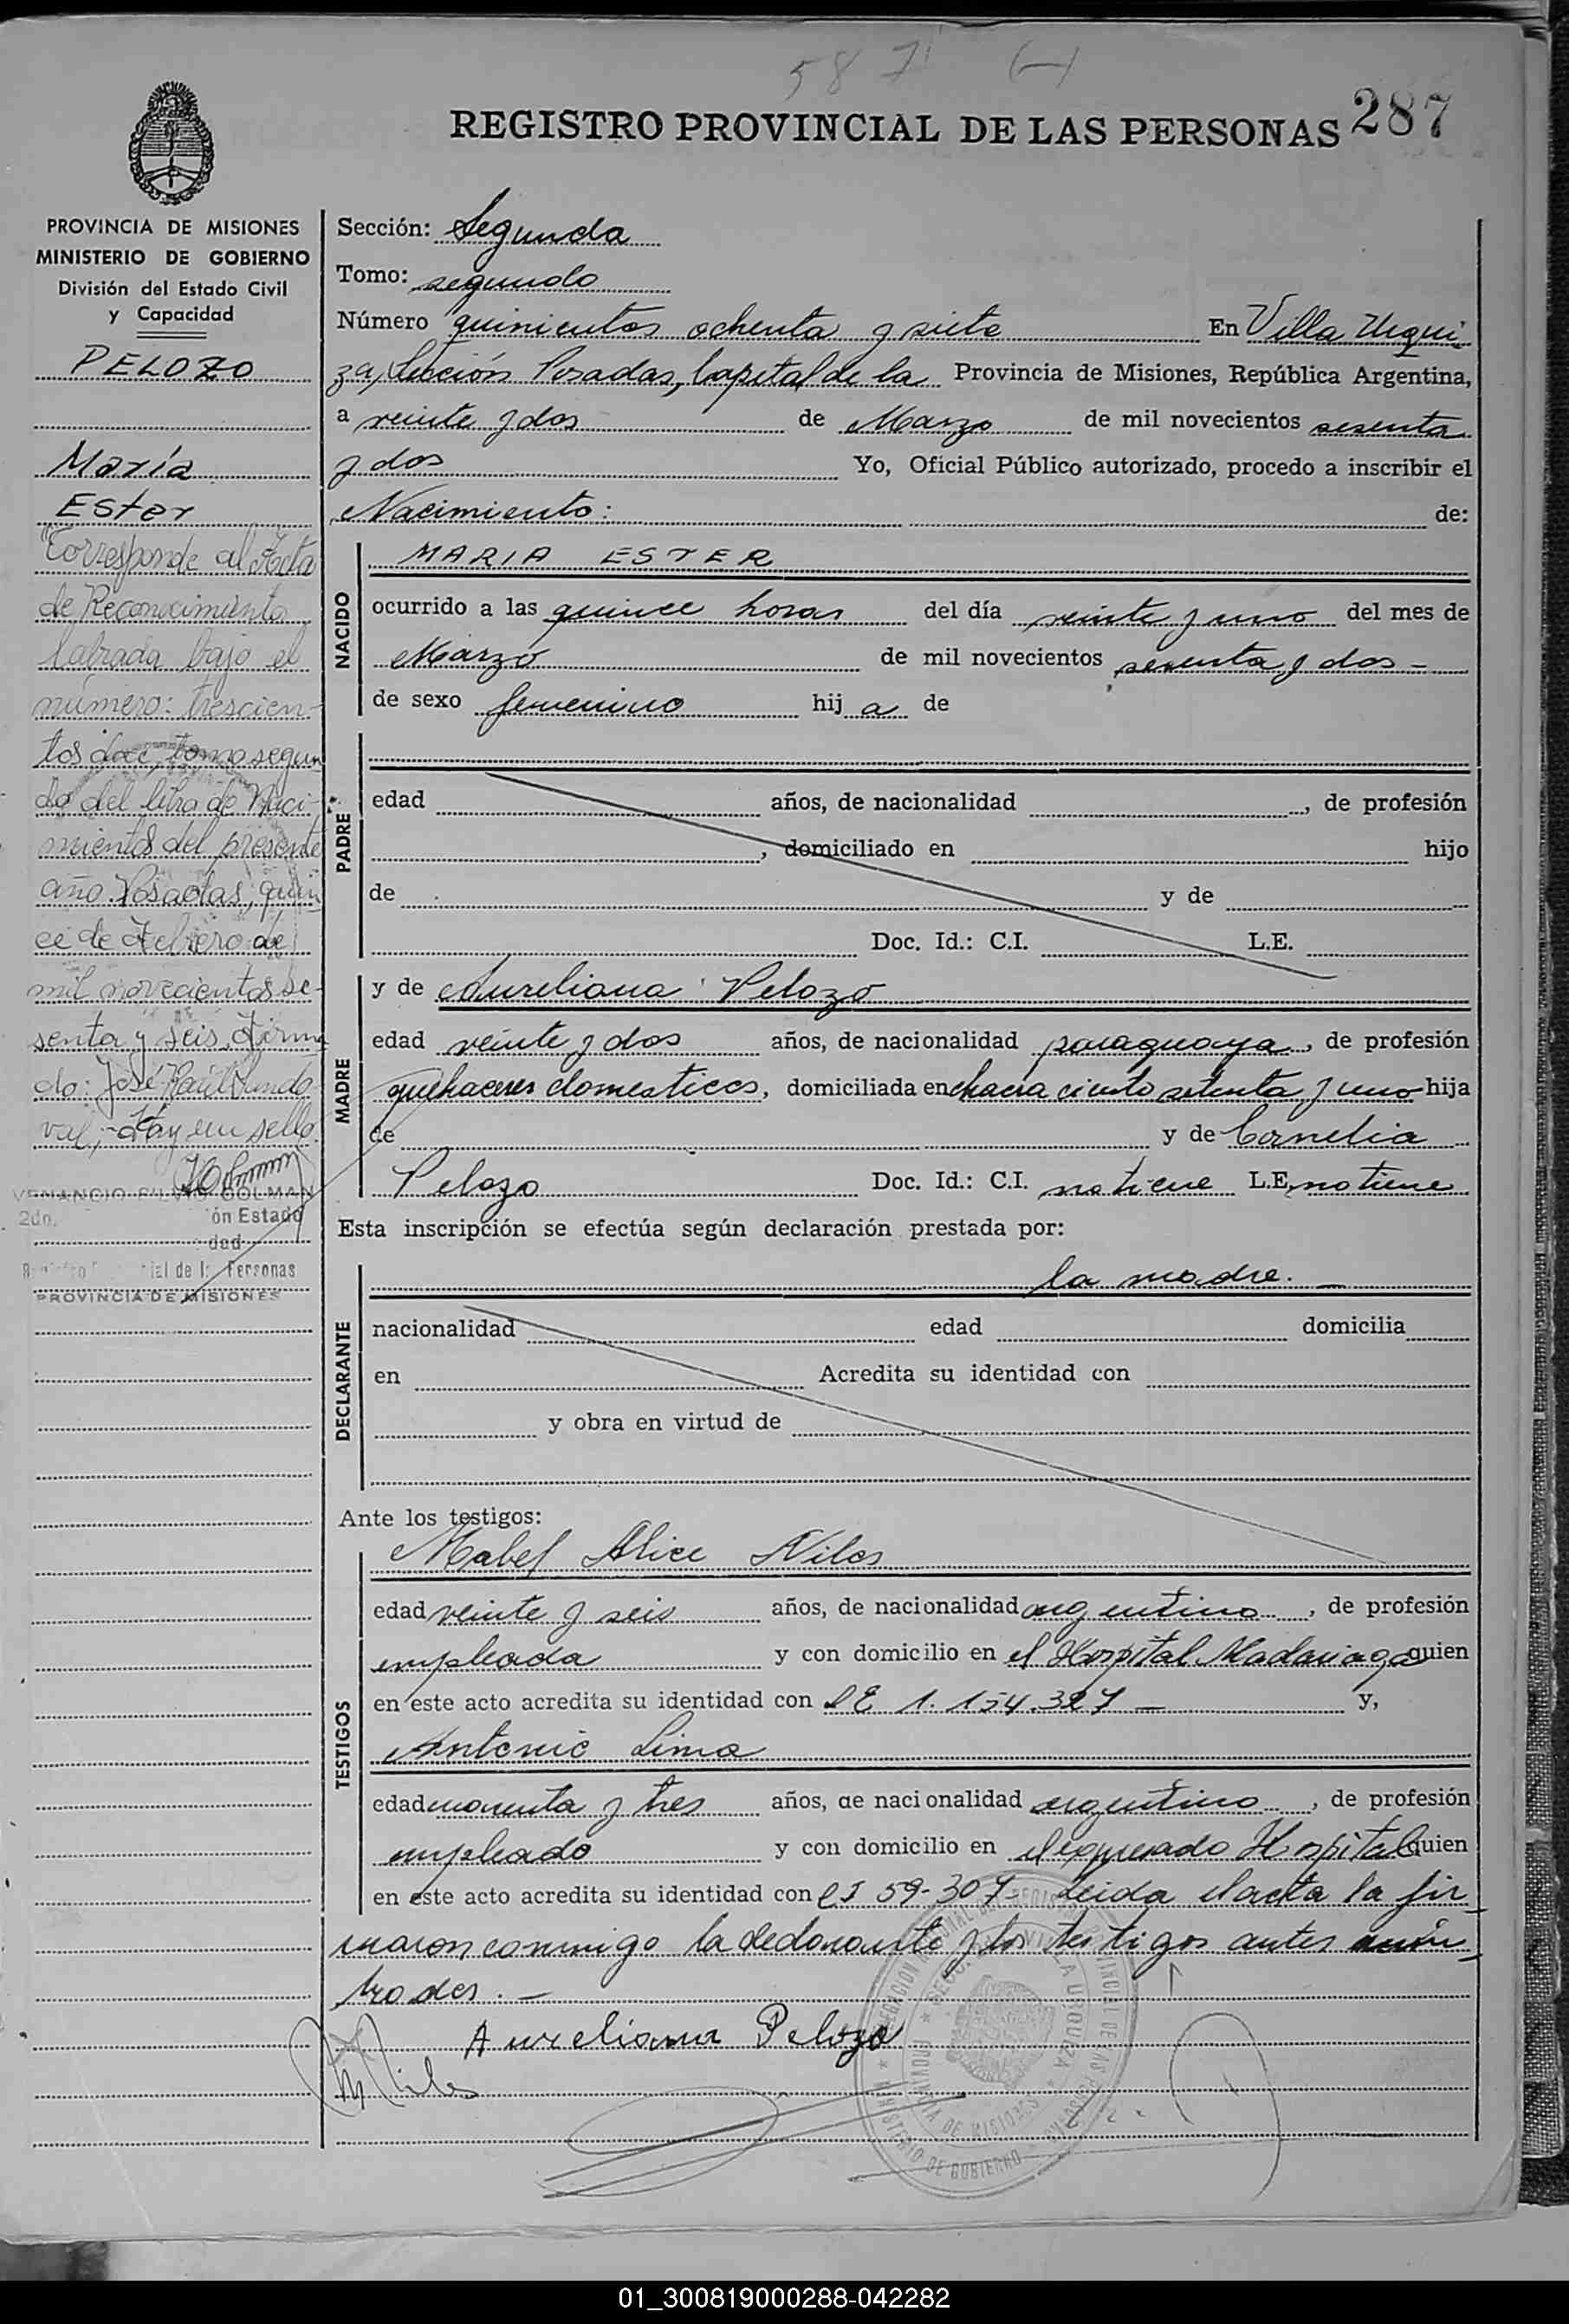 587 (-)
REGISTRO PROVINCIAL DE LAS PERSONAS 287
PROVINCIA DE MISIONES
MINISTERIO DE GOBIERNO
División del Estado Civil
y Capacidad
PELOZO
María
Ester
"Corresponde al Acta
de Reconocimiento
labrada bajo el
número: trescien-
tos doce, tomo segun
do del libro de Naci-
mientos del presente
año. Posadas, quin
ce de Febrero de
mil novecientos se-
senta y seis. Firma
do: José Raúl Sando
val,- Hay un sello.
VENANCIO SILVIO COLMAN
2do. ón Estado
dad
Personas
PROVINCIA DE MISIONES
Sección: Segunda
Tomo: segundo
Número quinientos ochenta y siete En Villa Urqui
za, Sección Posadas, Capital de la Provincia de Misiones, República Argentina,
a veinte y dos de Marzo de mil novecientos sesenta
y dos Yo, Oficial Público autorizado, procedo a inscribir el
Nacimiento: de:
NACIDO
MARIA ESTER
ocurrido a las quince horas del día veinte y uno del mes de
Marzo de mil novecientos sesenta y dos -
de sexo femenino hij a de
PADRE
edad años, de nacionalidad , de profesión
, domiciliado en hijo
de y de
Doc. Id.: C.I. L.E.
MADRE
y de Aureliana Pelozo
edad veinte y dos años, de nacionalidad paraguaya, de profesión
quehaceres domesticos, domiciliada en chacra ciento setenta y uno hija
de y de Cornelia
Pelozo Doc. Id.: C.I. no tiene L.E. no tiene
Esta inscripción se efectúa según declaración prestada por:
DECLARANTE
la madre. -
nacionalidad edad domicilia
en Acredita su identidad con
y obra en virtud de
Ante los testigos:
TESTIGOS
Mabel Alice Niles
edad veinte y seis años, de nacionalidad argentino, de profesión
empleada y con domicilio en el Hospital Madariaga quien
en este acto acredita su identidad con LE 1.154.327 - y,
Antonio Lima
edad y tres años, de nacionalidad argentino, de profesión
empleado y con domicilio en el expresado Hospital quien
en este acto acredita su identidad con CI 59-307 leida el acta la fir
maron conmigo la declarante y los testigos antes nom
brados. -
Aureliana Pelozo
M Niles
MINISTERIO DE GOBIERNO
VILLA URQUIZA
PROVINCIA DE MISIONES
01_300819000288-042282